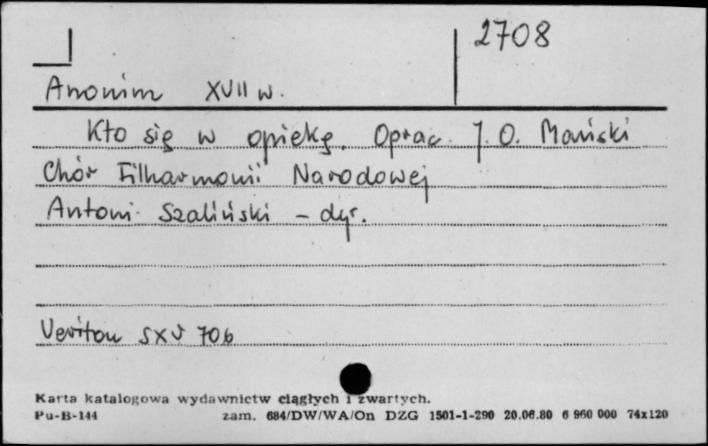 2708
Anonim XVII w.
Kto się w opiekę. Oprac. J. O. Mański
Chór Filharmonii Narodowej
Antoni Szaliński - dyr.
Veriton SXV 706
Karta katalogowa wydawnictw ciągłych i zwartych.
Pu-B-144 zam. 684/DW/WA/On DZG 1501-1-290 20.06.80 6 960 000 74x120